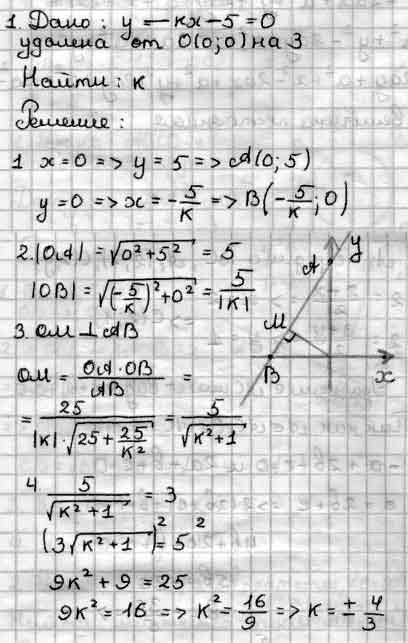 1. Дано: y - кx - 5 = 0
удалена от O(0;0) на 3
Найти: к
Решение:
1 x = 0 => y = 5 => A(0;5)
y = 0 => x = -5/к => B(-5/к; 0)
2. |OA| = √(0² + 5²) = 5
|OB| = √((-5/к)² + 0²) = 5/|к|
3. OM ⊥ AB
OM = OA·OB/AB =
= 25/(|к|·√(25 + 25/к²)) = 5/√(к² + 1)
4 5/√(к² + 1) = 3
(3√(к² + 1))² = 5²
9к² + 9 = 25
9к² = 16 => к² = 16/9 => к = ± 4/3
y
A
M
B
x